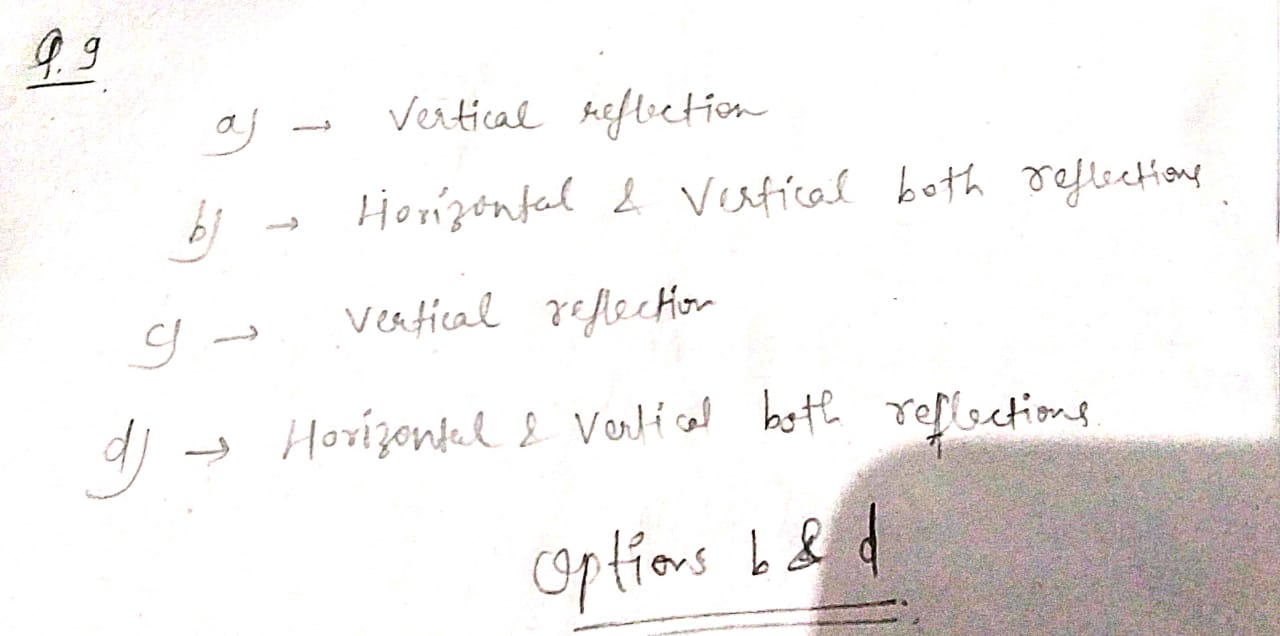 Q.9
a) → Vertical reflection
b) → Horizontal & Vertical both reflections.
c) → Vertical reflection
d) → Horizontal & Vertical both reflections.
Options b & d.